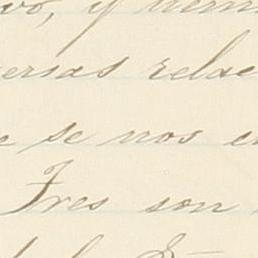 vo, y
ersas relac
e se nos e
Tres son